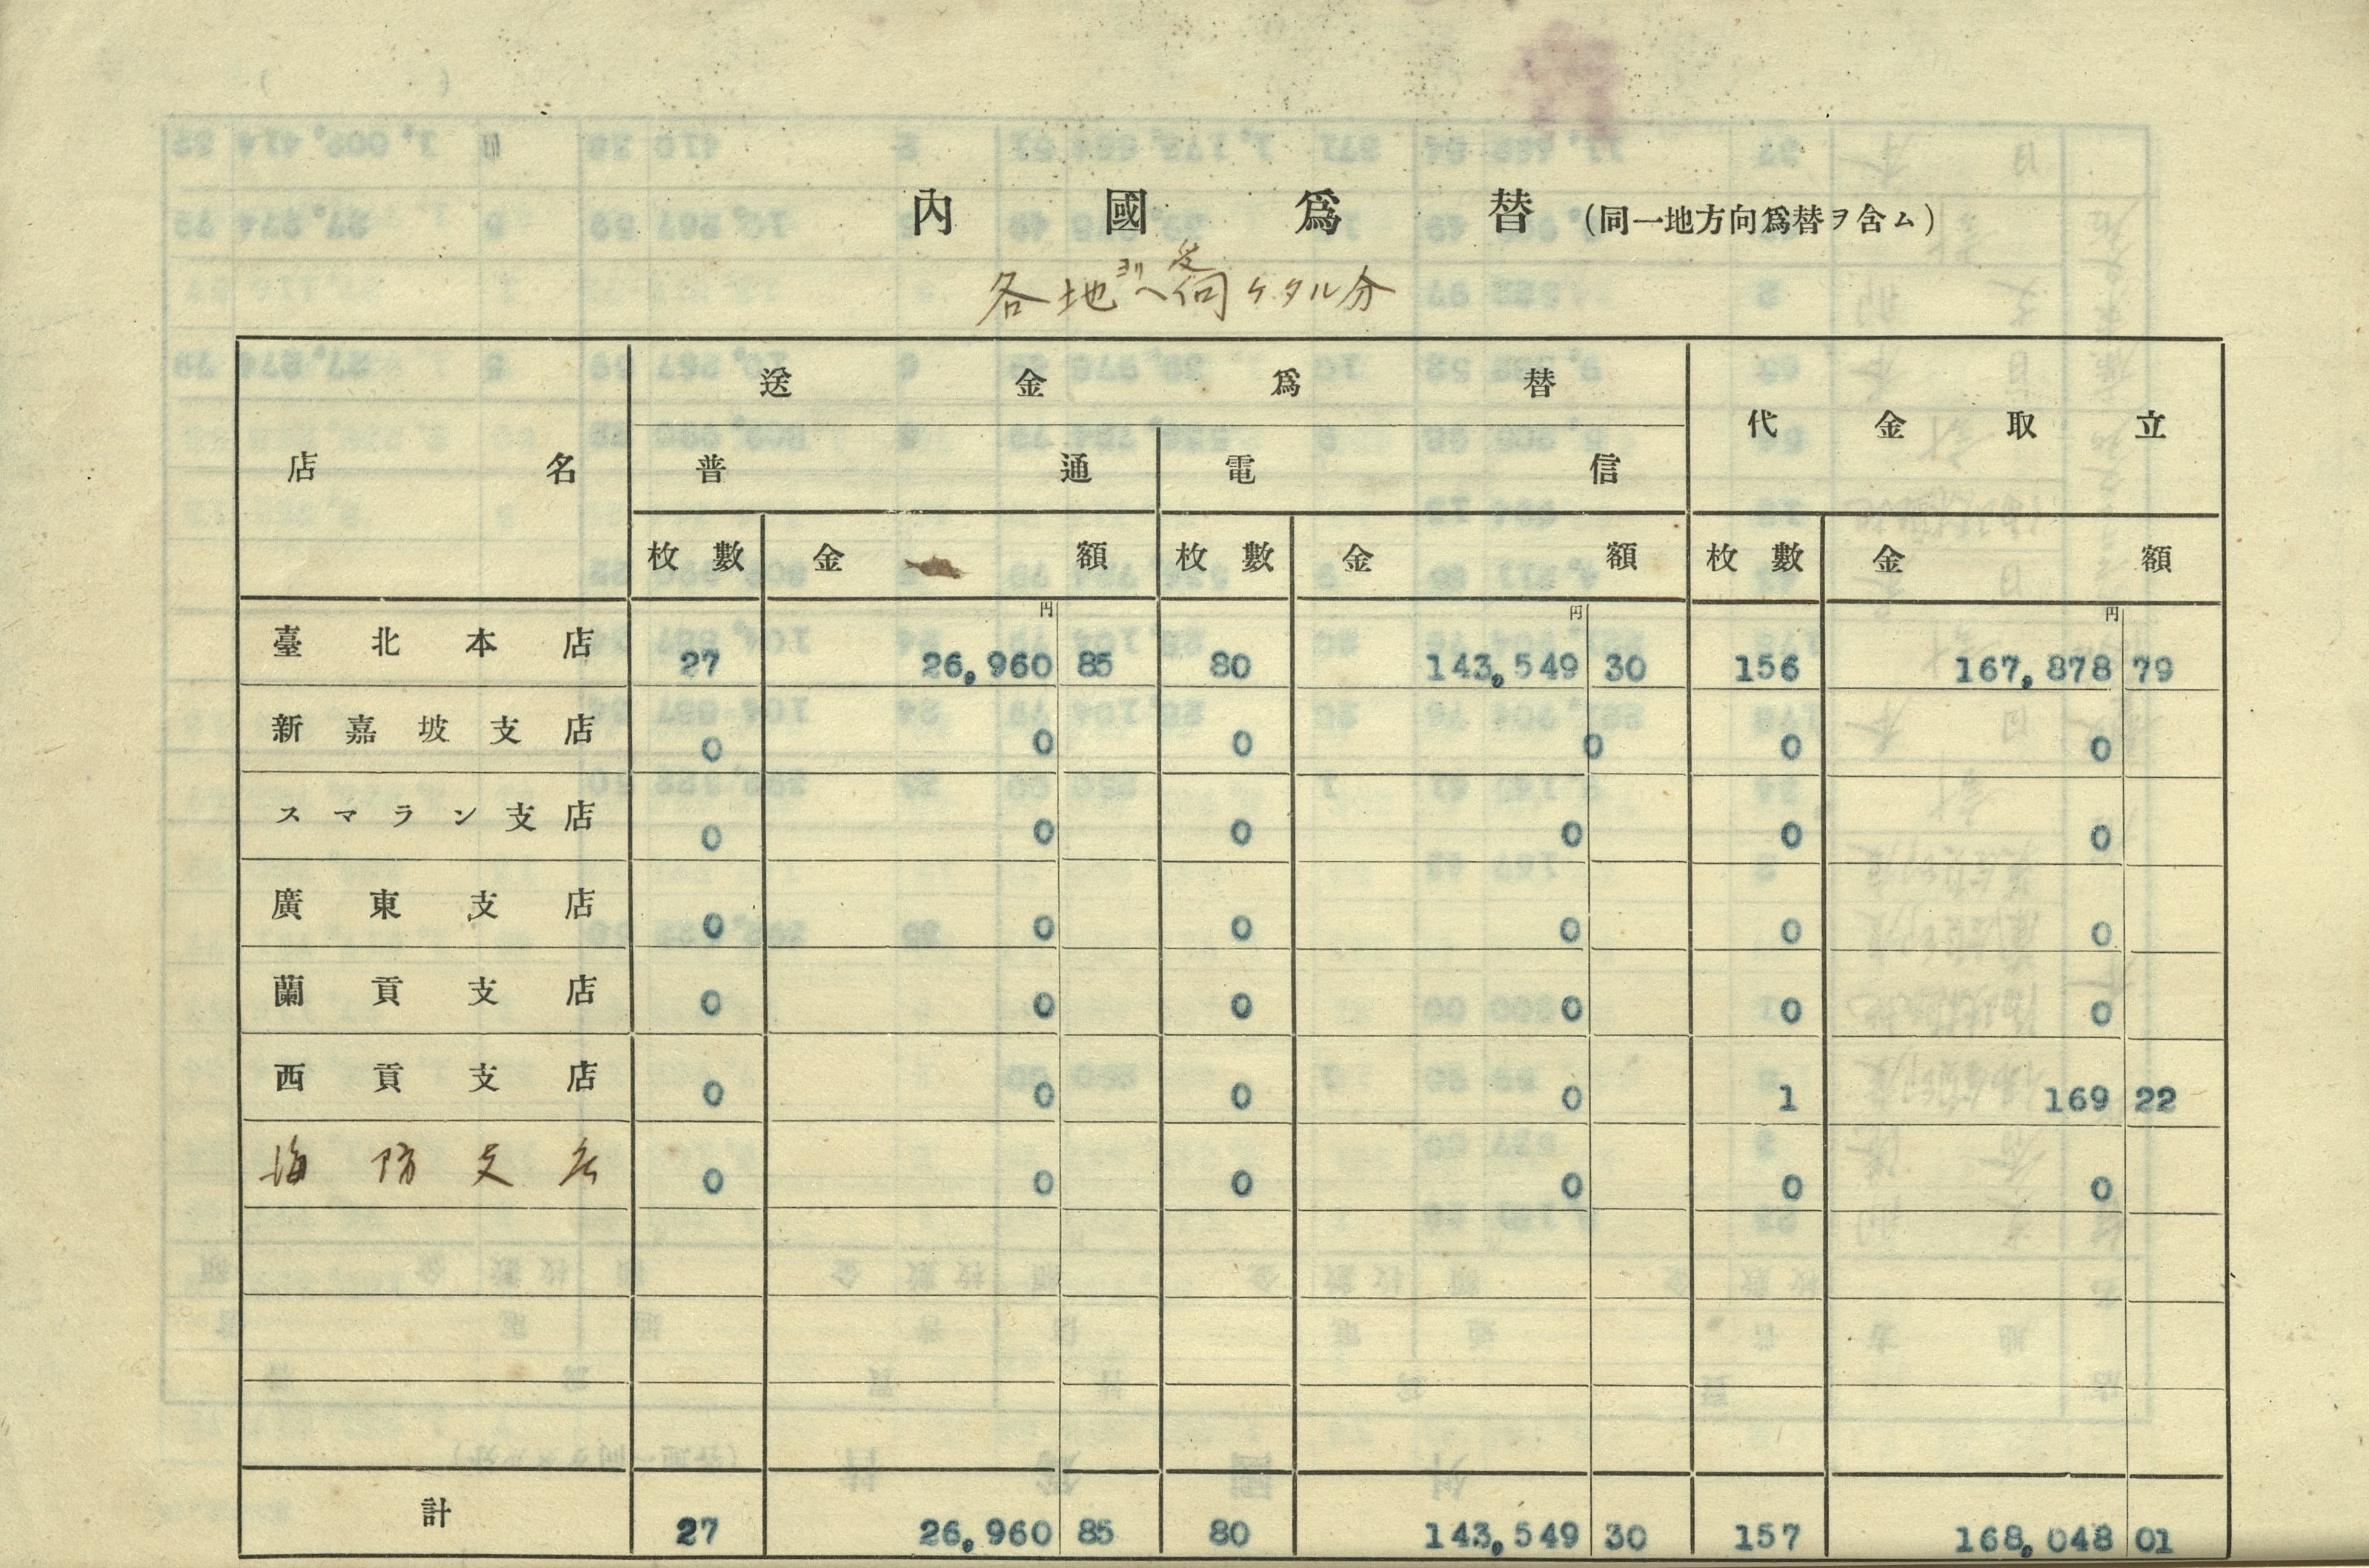 內國爲替(同一地方向爲替ヲ含ム)
各地ヨリ受ケタル分
店名 送金爲替 代金取立
普通 電信
枚數 金額 枚數 金額 枚數 金額
円 円 円
臺北本店 27 26,960 85 80 143,549 30 156 167,878 79
新嘉坡支店 0 0 0 0 0 0
スマラン支店 0 0 0 0 0 0
廣東支店 0 0 0 0 0 0
蘭貢支店 0 0 0 0 0 0
西貢支店 0 0 0 0 1 169 22
海防支店 0 0 0 0 0 0
計 27 26,960 85 80 143,549 30 157 168,048 01